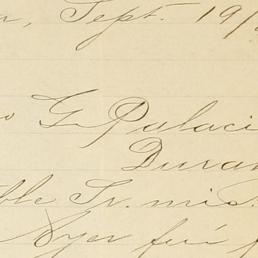 Sept. 19/
G. Palaci
Duran
ble Sr. mio:
Ayer fuí